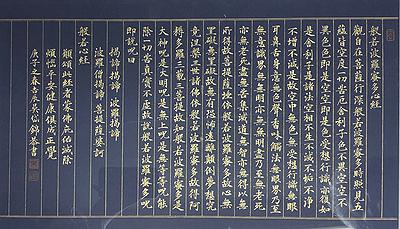 般若波羅蜜多心經
觀自在菩薩行深般若波羅蜜多時照見五
蘊皆空度一切苦厄舍利子色不異空空不
異色色即是空空即是色受想行識亦復如
是舍利子是諸法空相不生不滅不垢不淨
不增不減是故空中無色無受想行識無眼
耳鼻舌身意無色聲香味觸法無眼界乃至
無意識界無無明亦無無明盡乃至無老死
亦無老死盡無苦集滅道無智亦無得以無
所得故菩提薩埵依般若波羅蜜多故心無
罣礙無罣礙故無有恐怖遠離顛倒夢想究
竟涅槃三世諸佛依般若波羅蜜多故得阿
耨多羅三藐三菩提故知般若波羅蜜多是
大神呪是大明呪是無上呪是無等等呪能
除一切苦真實不虛故說般若波羅蜜多呪
即說呪曰
揭諦揭諦 波羅揭諦
波羅僧揭諦 菩提薩婆訶
般若心經
願頌此經者蒙佛庇佑滅除
煩惱平安健康俱成正覺
庚子之春吉辰吳信錦恭書